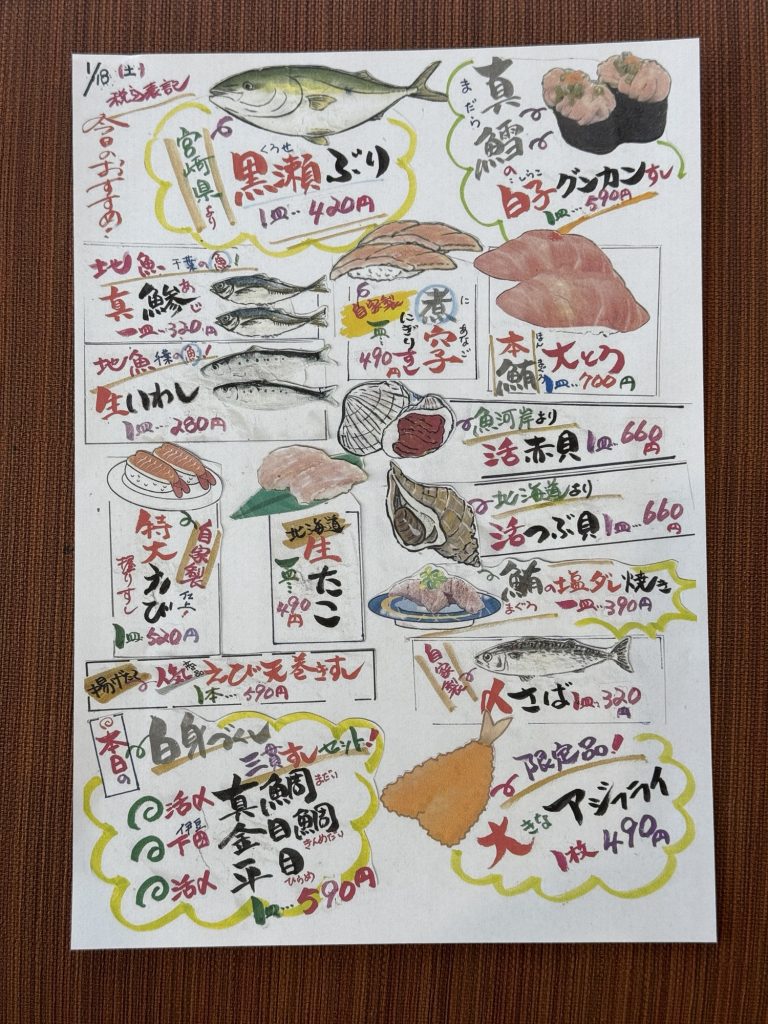 1/18(土)
税込表記
今日のおすすめ!
宮崎県より
くろせ
黒瀬ぶり
1皿…420円
まだら
真鱈の
しらこ
白子グンカンすし
1皿…590円
地魚 千葉の魚!
あじ
真鯵
一皿…320円
地魚 千葉の魚!
生いわし
1皿…280円
自家製
に あなご
煮穴子
にぎりすし
一皿…490円
ほん まぐろ
本鮪
大とろ
1皿…700円
魚河岸より
活赤貝 1皿…660円
北海道より
活つぶ貝 1皿…660円
自家製仕上!
特大えび
握りすし
1皿520円
北海道
生たこ
一皿…490円
鮪の塩ダレ焼き
まぐろ
一皿…390円
揚げたて 人気商品 えび天巻きすし
1本…590円
自家製
〆さば 1皿…320円
本日の
白身づくし
三貫すしセット!
活〆 真鯛 まだい
伊豆
下田 金目鯛 きんめだい
活〆 平目 ひらめ
1皿…590円
限定品!
大きなアジフライ
1枚490円